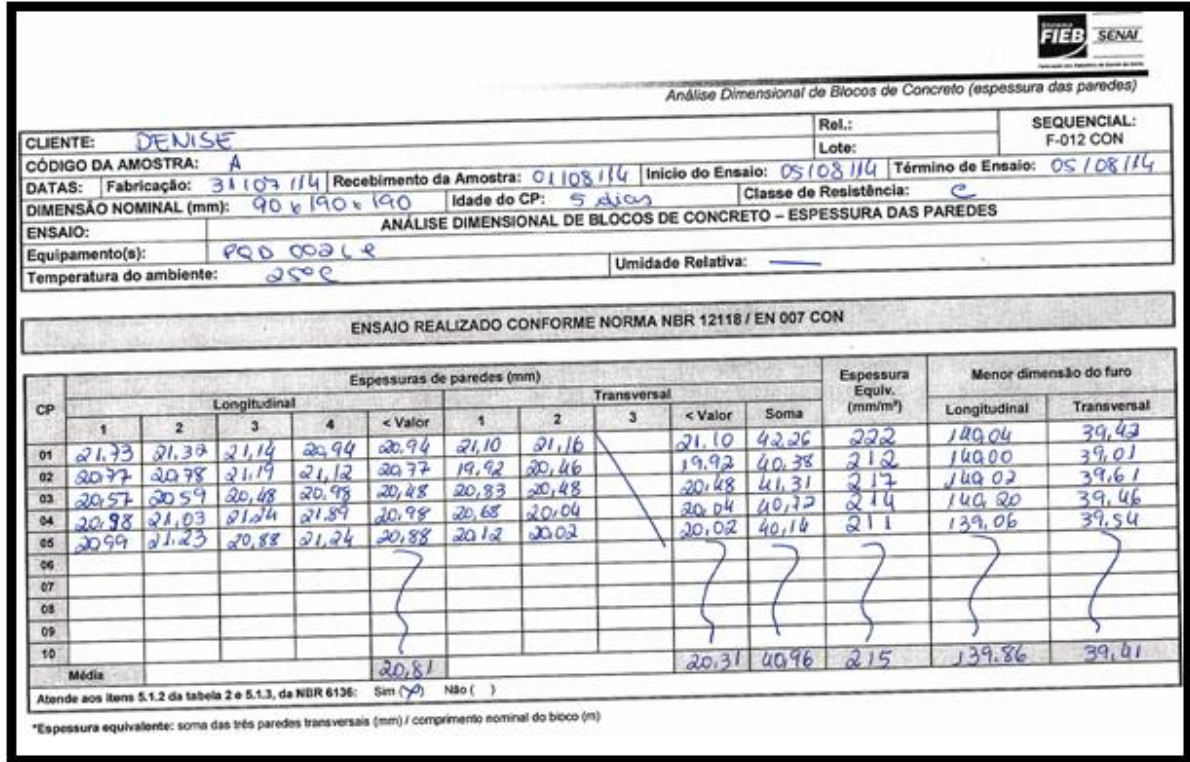 FIEB SENAI
Análise Dimensional de Blocos de Concreto (espessura das paredes)
CLIENTE: DENISE Rel.: SEQUENCIAL:
Lote: F-012 CON
CÓDIGO DA AMOSTRA: A
DATAS: Fabricação: 31/07/14 Recebimento da Amostra: 01/08/14 Inicio do Ensaio: 05/08/14 Término de Ensaio: 05/08/14
DIMENSÃO NOMINAL (mm): 90 x 190 x 190 Idade do CP: 5 dias Classe de Resistência: C
ENSAIO: ANÁLISE DIMENSIONAL DE BLOCOS DE CONCRETO – ESPESSURA DAS PAREDES
Equipamento(s): PQD
Temperatura do ambiente: 25°C Umidade Relativa: —
ENSAIO REALIZADO CONFORME NORMA NBR 12118 / EN 007 CON
CP Espessuras de paredes (mm) Espessura Equiv. (mm/m²) Menor dimensão do furo
Longitudinal Transversal Longitudinal Transversal
1 2 3 4 < Valor 1 2 3 < Valor Soma
01 21,73 21,37 21,14 20,94 20,94 21,10 21,16 21,10 42,26 222 140,04 39,42
02 20,77 20,78 21,19 21,12 20,77 19,92 20,46 19,92 40,38 212 140,00 39,01
03 20,57 20,59 20,48 20,98 20,48 20,83 20,48 20,48 41,31 217 140,02 39,61
04 20,98 21,03 21,24 21,89 20,98 20,68 20,04 20,04 40,72 214 140,20 39,46
05 20,99 21,23 20,88 21,24 20,88 20,12 20,02 20,02 40,14 211 139,06 39,54
06
07
08
09
10
Média 20,81 20,31 40,96 215 139.86 39,41
Atende aos itens 5.1.2 da tabela 2 e 5.1.3, da NBR 6136: Sim (x) Não ( )
*Espessura equivalente: soma das três paredes transversais (mm) / comprimento nominal do bloco (m)